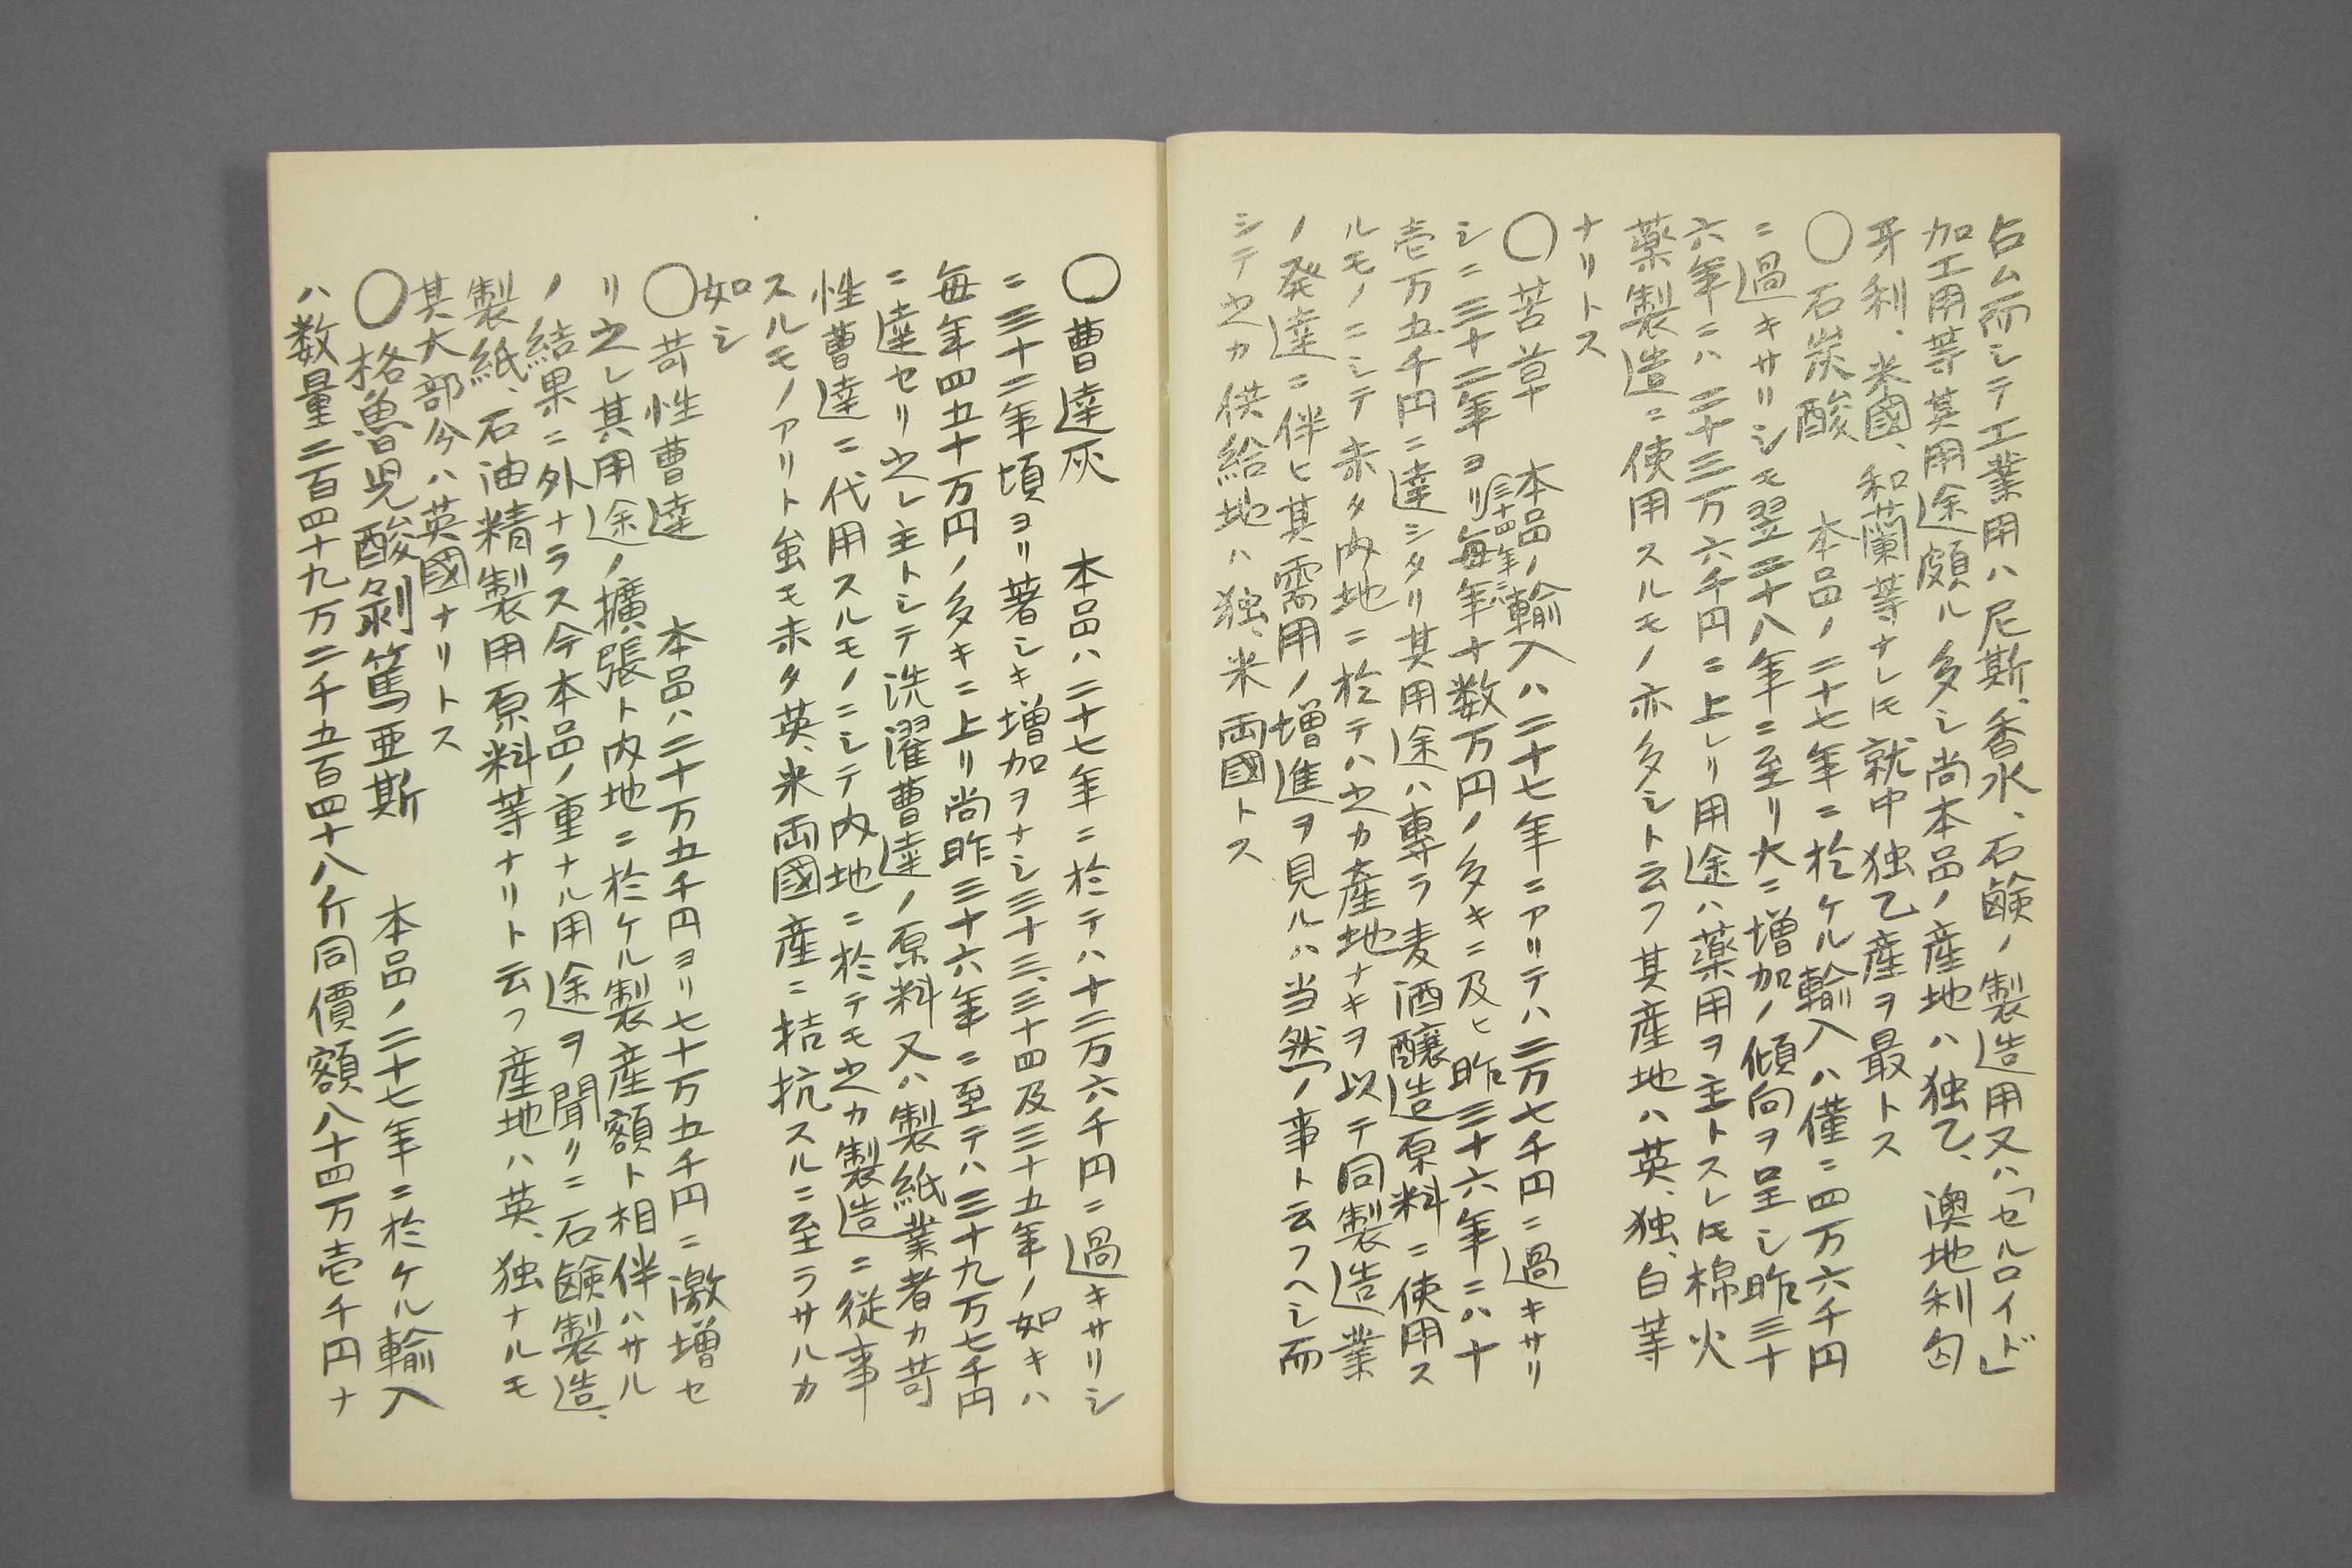 占ム而シテ工業用ハ尼斯、香水、石鹸ノ製造用又ハ「セルロイド」
加工用等其用途頗ル多シ尚本品ノ産地ハ独乙、澳地利匈
牙利、米國、和蘭等ナレ𪜈就中独乙産ヲ最トス
〇石炭酸 本品ノ二十七年ニ於ケル輸入ハ僅ニ四万六千円
ニ過キサリシモ翌二十八年ニ至リ大ニ増加ノ傾向ヲ呈シ昨三十
六年ニハ二十三万六千円ニ上レリ用途ハ薬用ヲ主トスレ𪜈棉火
薬製造ニ使用スルモノ亦多シト云フ其産地ハ英、独、白等
ナリトス
〇苦草 本品ノ輸入ハ二十七年ニアリテハ二万七千円ニ過キサリ
シニ三十二年ヨリ三十四年ニ毎年十数万円ノ多キニ及ヒ昨三十六年ニハ十
壱万五千円ニ達シタリ其用途ハ專ラ麦酒醸造原料ニ使用ス
ルモノニシテ未タ内地ニ於テハ之カ産地ナキヲ以テ同製造業
ノ発達ニ伴ヒ其需用ノ増進ヲ見ルハ当然ノ事ト云フヘシ而
シテ之カ供給地ハ独、米両國トス
〇曹達灰 本品ハ二十七年ニ於テハ十二万六千円ニ過キサリシ
ニ三十二年頃ヨリ著シキ増加ヲナシ三十三、三十四及三十五年ノ如キハ
毎年四五十万円ノ多キニ上リ尚昨三十六年ニ至テハ三十九万七千円
ニ達セリ之レ主トシテ洗濯曹達ノ原料又ハ製紙業者カ苛
性曹達ニ代用スルモノニシテ内地ニ於テモ之カ製造ニ従事
スルモノアリト虽モ未タ英、米両國産ニ拮抗スルニ至ラサルカ
如シ
〇苛性曹達 本品ハ二十万五千円ヨリ七十万五千円ニ激増セ
リ之レ其用途ノ擴張ト内地ニ於ケル製産額ト相伴ハサル
ノ結果ニ外ナラス今本品ノ重ナル用途ヲ聞クニ石鹸製造、
製紙、石油精製用原料等ナリト云フ産地ハ英、独ナルモ
其大部分ハ英國ナリトス
〇格魯児酸剥篤亜斯 本品ノ二十七年ニ於ケル輸入
ハ数量二百四十九万二千五百四十八斤同價額八十四万壱千円ナ